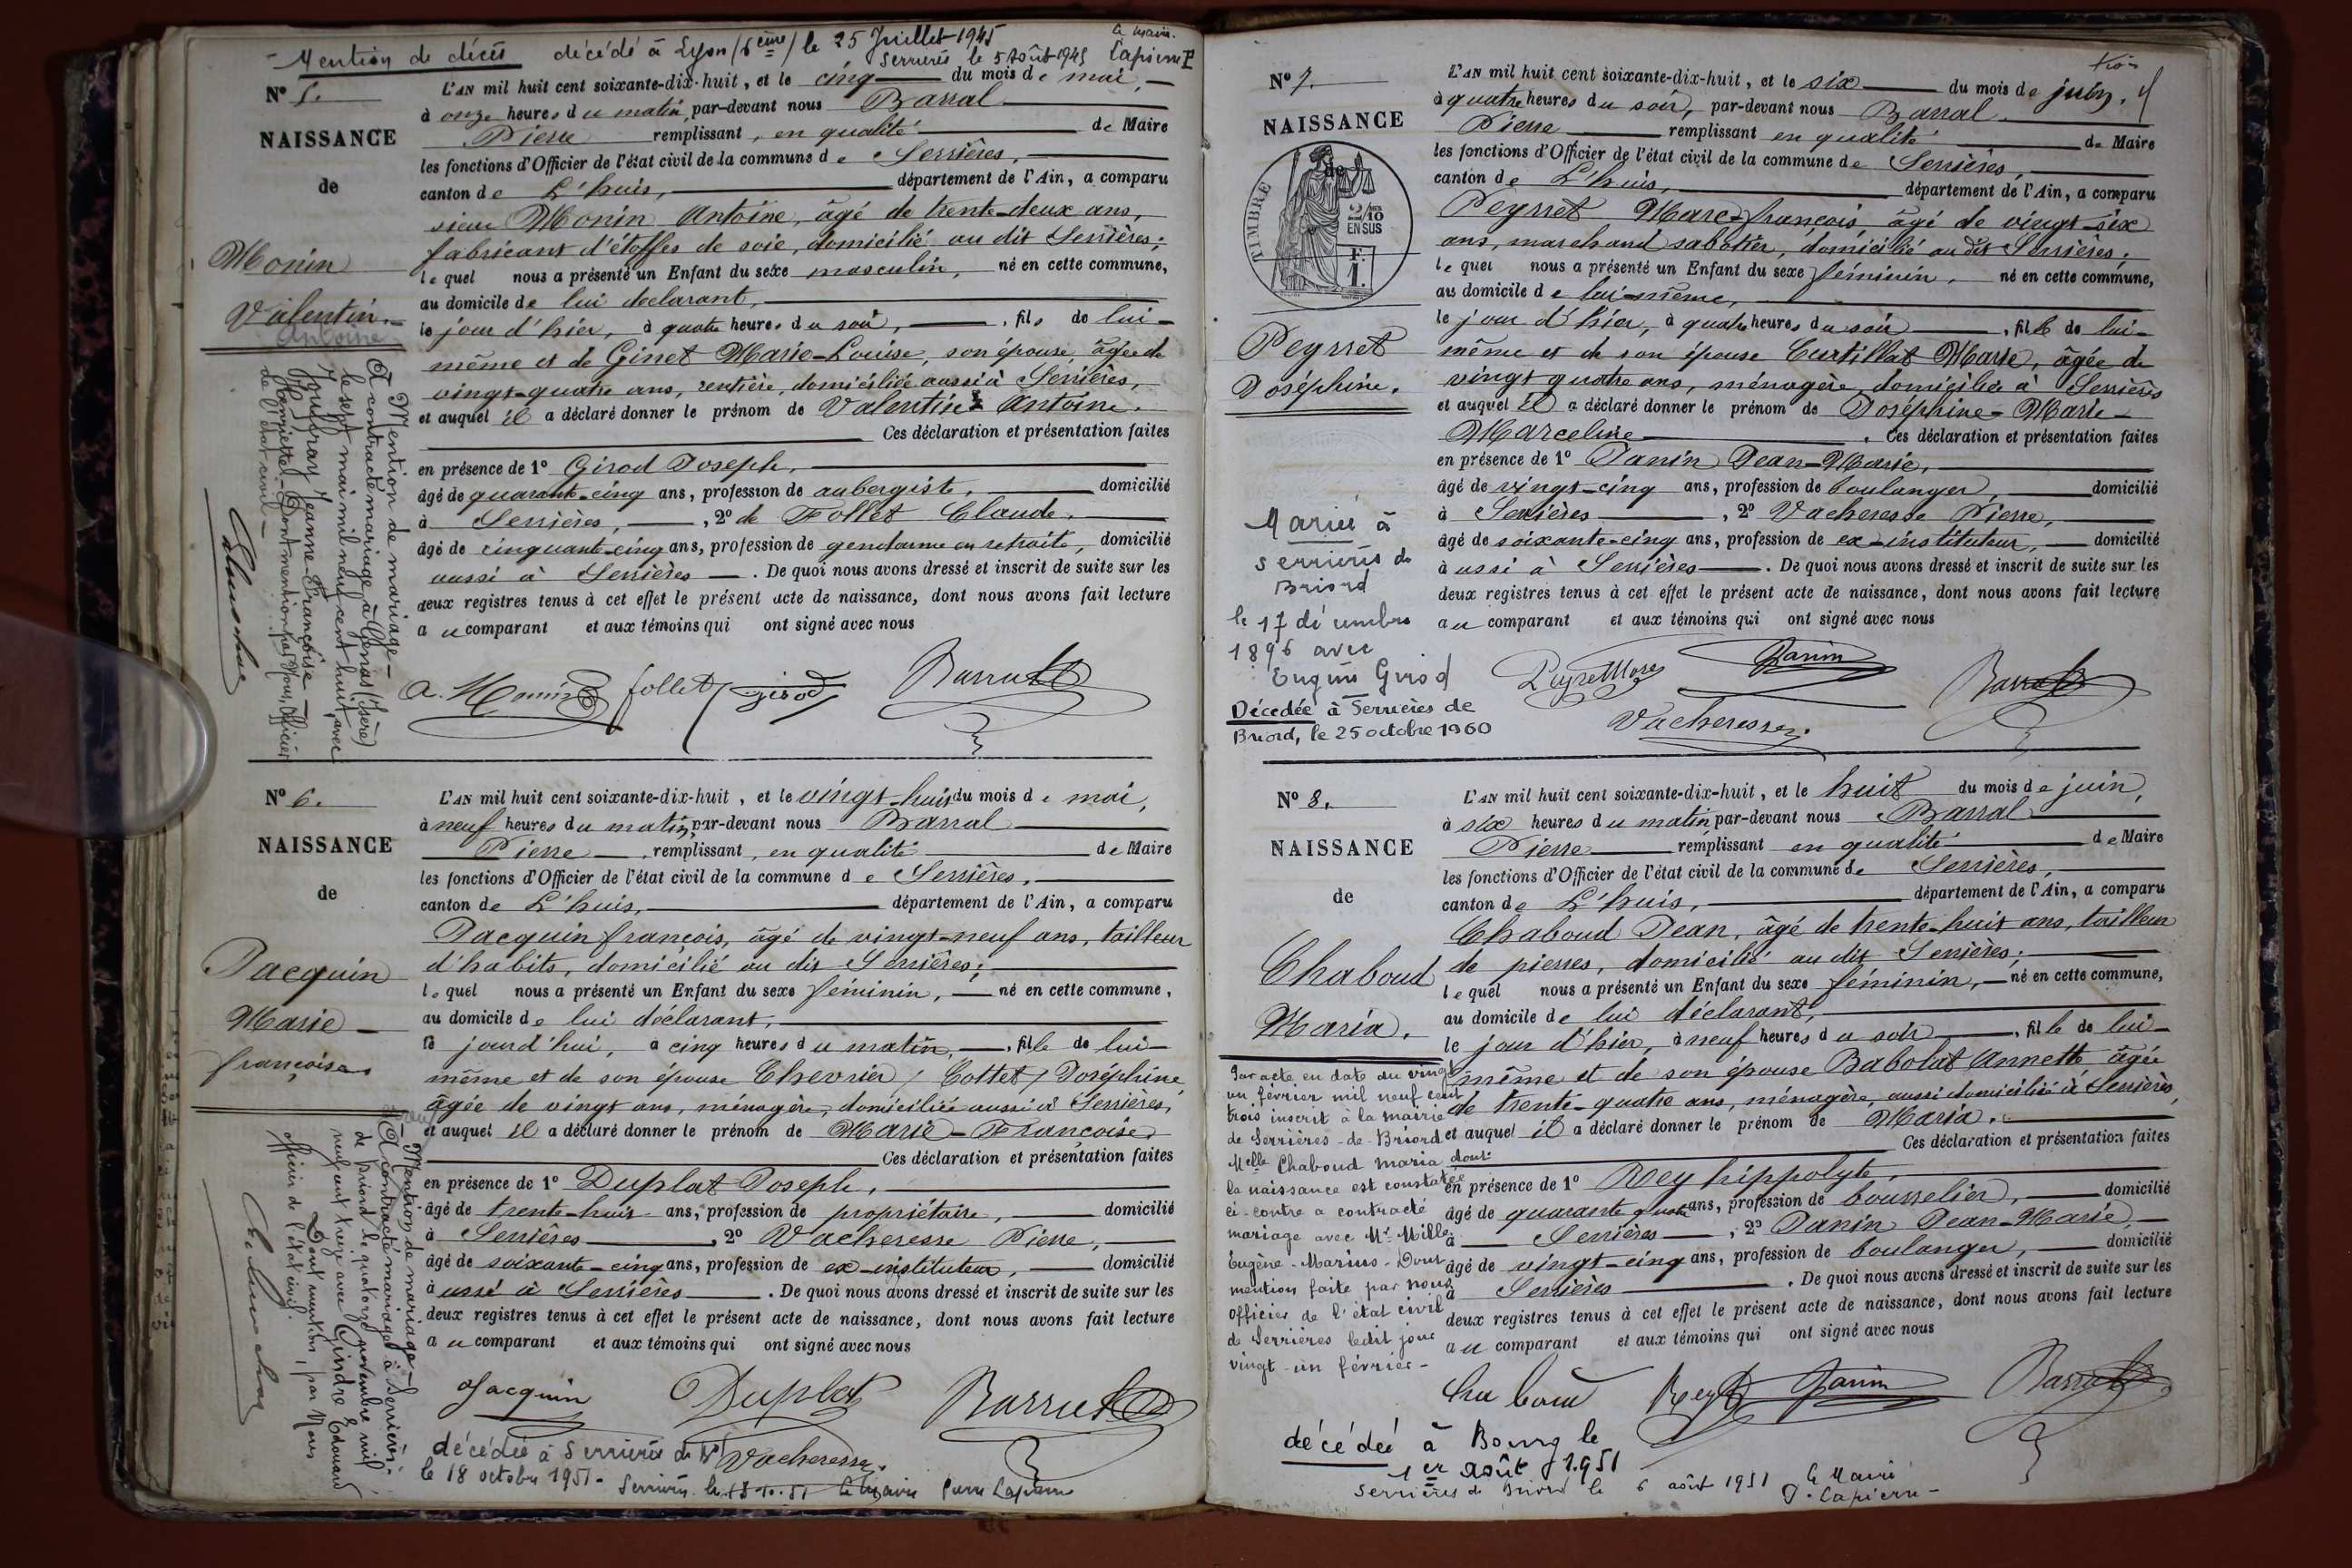 Mention de décès décédé à Lyon (6ème) le 25 Juillet 1945
Serrières le 5 Août 1945
Le Maire
Lapierre P
N° 5.
NAISSANCE
de
Monin
Valentin.
Antoine
L'AN mil huit cent soixante-dix-huit, et le cinq du mois de mai,
à onze heures du matin, par-devant nous Barral
Pierre remplissant, en qualité de Maire
les fonctions d'Officier de l'état civil de la commune de Serrières,
canton de L'huis, département de l'Ain, a comparu
sieur Monin Antoine, âgé de trente-deux ans,
fabricant d'étoffes de soie, domicilié au dit Serrières;
lequel nous a présenté un Enfant du sexe masculin, né en cette commune,
au domicile de lui déclarant,
le jour d'hier, à quatre heures du soir, fils de lui-
même et de Ginet Marie-Louise, son épouse, âgée de
vingt-quatre ans, rentière, domiciliée aussi à Serrières,
et auquel il a déclaré donner le prénom de Valentin Antoine.
Ces déclaration et présentation faites
en présence de 1° Girod Joseph,
âgé de quarante-cinq ans, profession de aubergiste, domicilié
à Serrières, 2° de Follet Claude,
âgé de cinquante-cinq ans, profession de gendarme en retraite, domicilié
aussi à Serrières. De quoi nous avons dressé et inscrit de suite sur les
deux registres tenus à cet effet le présent acte de naissance, dont nous avons fait lecture
au comparant et aux témoins qui ont signé avec nous
A. Monin follet girod Barral
Mention de mariage
A contracté mariage à Genas (Isère)
le sept mai mil neuf cent huit, avec
Jouffray Jeanne-Françoise
Henriette - Dont mention par Nous, officier
de l'état civil -
N° 6.
NAISSANCE
de
Jacquin
Marie
françoise.
L'AN mil huit cent soixante-dix-huit, et le vingt-huit du mois de mai,
à neuf heures du matin, par-devant nous Barral
Pierre, remplissant, en qualité de Maire
les fonctions d'Officier de l'état civil de la commune de Serrières,
canton de L'huis, département de l'Ain, a comparu
Jacquin françois, âgé de vingt-neuf ans, tailleur
d'habits, domicilié au dit Serrières;
lequel nous a présenté un Enfant du sexe féminin, né en cette commune,
au domicile de lui déclarant,
le jourd'hui, à cinq heures du matin, fille de lui-
même et de son épouse Chevrier / Cottet / Joséphine
âgée de vingt ans, ménagère, domiciliée aussi à Serrières,
et auquel il a déclaré donner le prénom de Marie-Françoise
Ces déclaration et présentation faites
en présence de 1° Duplat Joseph,
âgé de trente-huit ans, profession de propriétaire, domicilié
à Serrières, 2° Vacheresse Pierre,
âgé de soixante-cinq ans, profession de ex-instituteur, domicilié
aussi à Serrières. De quoi nous avons dressé et inscrit de suite sur les
deux registres tenus à cet effet le présent acte de naissance, dont nous avons fait lecture
au comparant et aux témoins qui ont signé avec nous
Jacquin Duplat Barral
Vacheresse
Mention de mariage -
A contracté mariage à Serrières-
de Briord le quatorze novembre mil
neuf cent treize avec Gindre Edouard
Dont mention, par Nous
officier de l'état civil.
décédée à Serrières de B
le 18 octobre 1951 - Serrières le 18.10.51 Le Maire Pierre Lapierre
N° 7.
NAISSANCE
de
TIMBRE
2/10
EN SUS
F.
1.
Peyret
Joséphine.
L'AN mil huit cent soixante-dix-huit, et le six du mois de juin,
à quatre heures du soir, par-devant nous Barral
Pierre remplissant en qualité de Maire
les fonctions d'Officier de l'état civil de la commune de Serrières,
canton de L'huis, département de l'Ain, a comparu
Peyret Marc-françois, âgé de vingt-six
ans, marchand sabotier, domicilié au dit Serrières;
lequel nous a présenté un Enfant du sexe féminin, né en cette commune,
au domicile de lui-même,
le jour d'hier, à quatre heures du soir, fille de lui-
même et de son épouse Curtillat Marie, âgée de
vingt quatre ans, ménagère, domiciliée à Serrières
et auquel il a déclaré donner le prénom de Joséphine-Marie-
Marceline. Ces déclaration et présentation faites
en présence de 1° Janin Jean-Marie,
âgé de vingt-cinq ans, profession de boulanger, domicilié
à Serrières, 2° Vacheresse Pierre,
âgé de soixante-cinq ans, profession de ex-instituteur, domicilié
aussi à Serrières. De quoi nous avons dressé et inscrit de suite sur les
deux registres tenus à cet effet le présent acte de naissance, dont nous avons fait lecture
au comparant et aux témoins qui ont signé avec nous
Janin Barral
Vacheresse
Mariée à
Serrières de
Briord
le 17 décembre
1896 avec
Eugène Girod
Décédée à Serrières de
Briord, le 25 octobre 1960
N° 8.
NAISSANCE
de
Chaboud
Maria.
L'AN mil huit cent soixante-dix-huit, et le huit du mois de juin,
à six heures du matin par-devant nous Barral
Pierre remplissant en qualité de Maire
les fonctions d'Officier de l'état civil de la commune de Serrières,
canton de L'huis, département de l'Ain, a comparu
Chaboud Jean, âgé de trente-huit ans, tailleur
de pierres, domicilié au dit Serrières;
lequel nous a présenté un Enfant du sexe féminin, né en cette commune,
au domicile de lui déclarant,
le jour d'hier, à neuf heures du soir, fille de lui-
même et de son épouse Babolat Annette âgée
de trente-quatre ans, ménagère, aussi domiciliée à Serrières,
et auquel il a déclaré donner le prénom de Maria.
Ces déclaration et présentation faites
en présence de 1° Rey hippolyte,
âgé de quarante quatre ans, profession de bourrelier, domicilié
à Serrières, 2° Janin Jean-Marie,
âgé de vingt-cinq ans, profession de boulanger, domicilié
à Serrières. De quoi nous avons dressé et inscrit de suite sur les
deux registres tenus à cet effet le présent acte de naissance, dont nous avons fait lecture
au comparant et aux témoins qui ont signé avec nous
Chaboud Rey Janin Barral
Par acte en date du vingt
un février mil neuf cent
trois inscrit à la mairie
de Serrières-de-Briord
Melle Chaboud Maria dont
la naissance est constatée
ci-contre a contracté
mariage avec Mr Mille
Eugène-Marius. Dont
mention faite par nous
Officier de l'état civil
de Serrières ledit jour
vingt-un février -
décédée à Bourg le
1er août 1951
Serrières de Briord le 6 août 1951 Le Maire
P. Lapierre